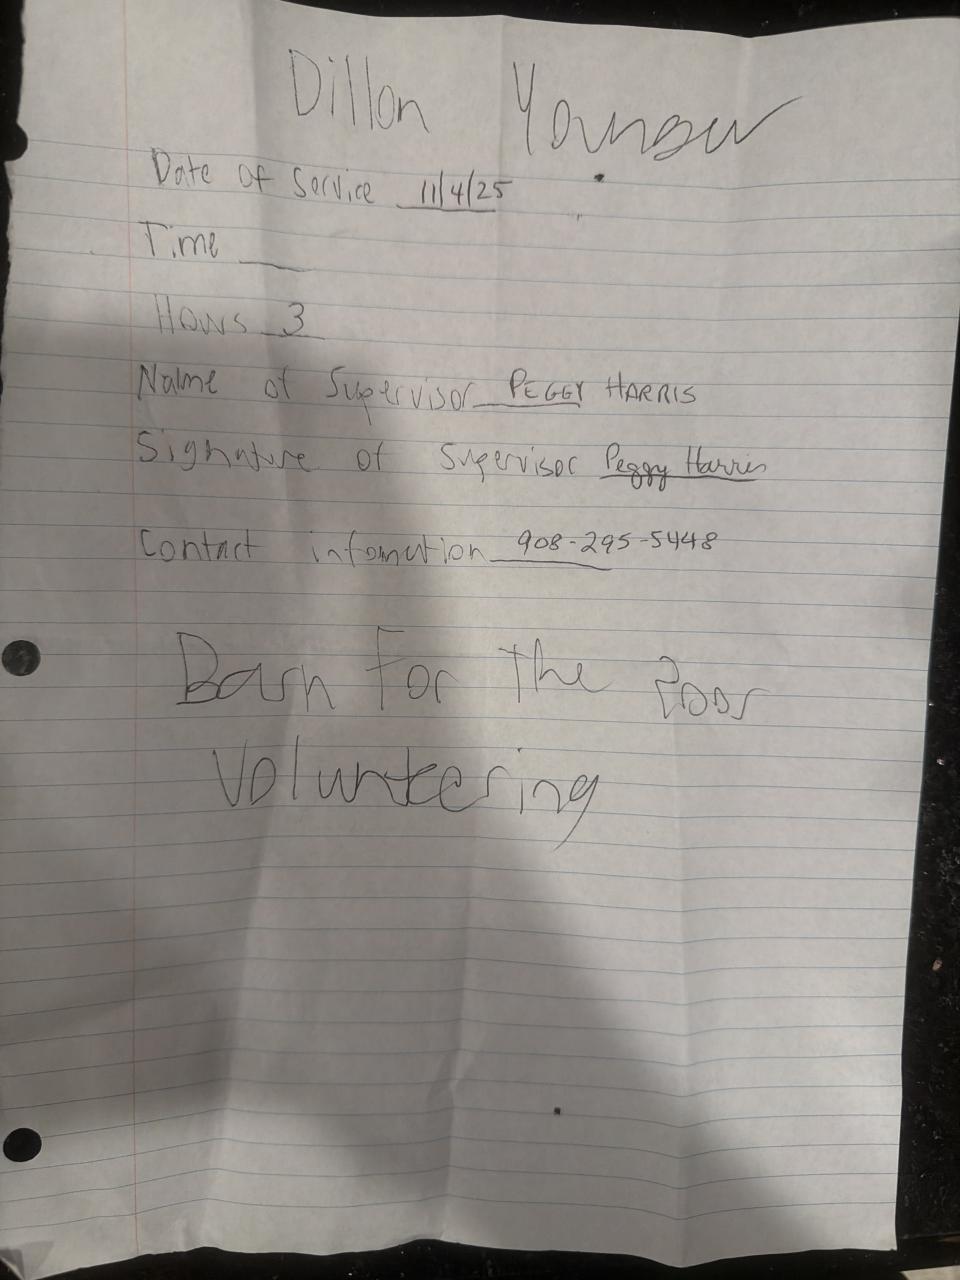 Dillon Younger
Date of Service 11/4/25
Time
Hours 3
Name of Supervisor PEGGY HARRIS
Signature of Supervisor Peggy Harris
Contact infomation 908-295-5448
Barn For The Poor
Voluntering